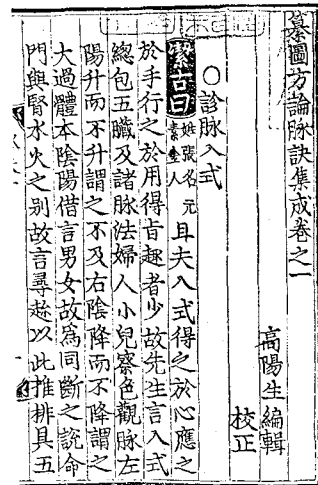 纂圖方論脉訣集成卷之一
高陽生編輯
校正
○診脉入式
潔古曰姓張名元素金人且夫入式得之於心應之
於手行之於用得旨趣者少故先生言入式
總包五臟及諸脉法婦人小兒察色觀脉左
陽升而不升謂之不及右陰降而不降謂之
大過體本陰陽借言男女故爲同斷之說命
門與腎水火之別故言尋趁以此推排具五